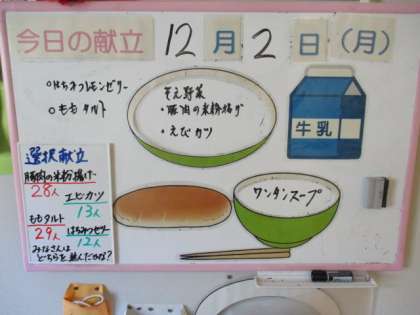 今日の献立 12月2日(月)
○はちみつレモンゼリー
○ももタルト
そえ野菜
・豚肉の米粉揚げ
・えびカツ
牛乳
ワンタンスープ
選択献立
豚肉の米粉揚げ
28人
エビカツ
13人
ももタルト
29人
はちみつゼリー
12人
みなさんは
どちらを選んだかな?